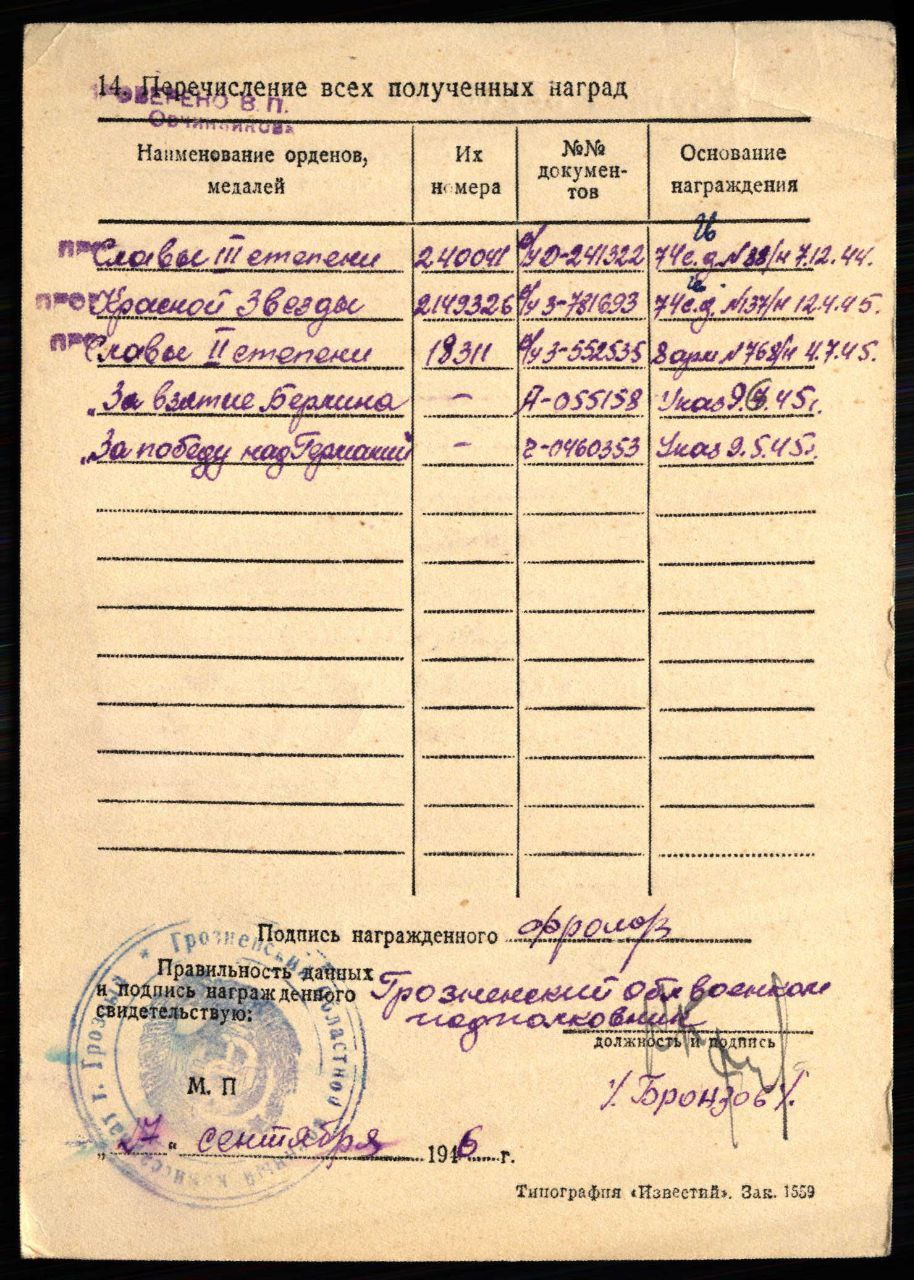 14. Перечисление всех полученных наград
ПРОВЕРЕНО В.П.
Овчинникова
Наименование орденов, медалей
Их номера
№№ докумен-тов
Основание награждения
Славы III степени 240041 о/у Д-241322 74 с.д. №88/н 7.12.44.
Красной Звезды 2149326 о/у З-781693 74 с.д. №137/н 12.4.45.
Славы II степени 18311 о/у З-552535 8 арм №768/н 4.7.45.
„За взятие Берлина — А-055158 Указ 9.6.45г.
„За победу над Германией" — 0460353 Указ 9.5.45г.
Подпись награжденного Фролов
Правильность данных
и подпись награжденного
свидетельствую:
Грозненский облвоенком
подполковник
должность и подпись
М. П
/Бронзов/.
„17" сентября 1946 г.
Типография «Известий». Зак. 1559